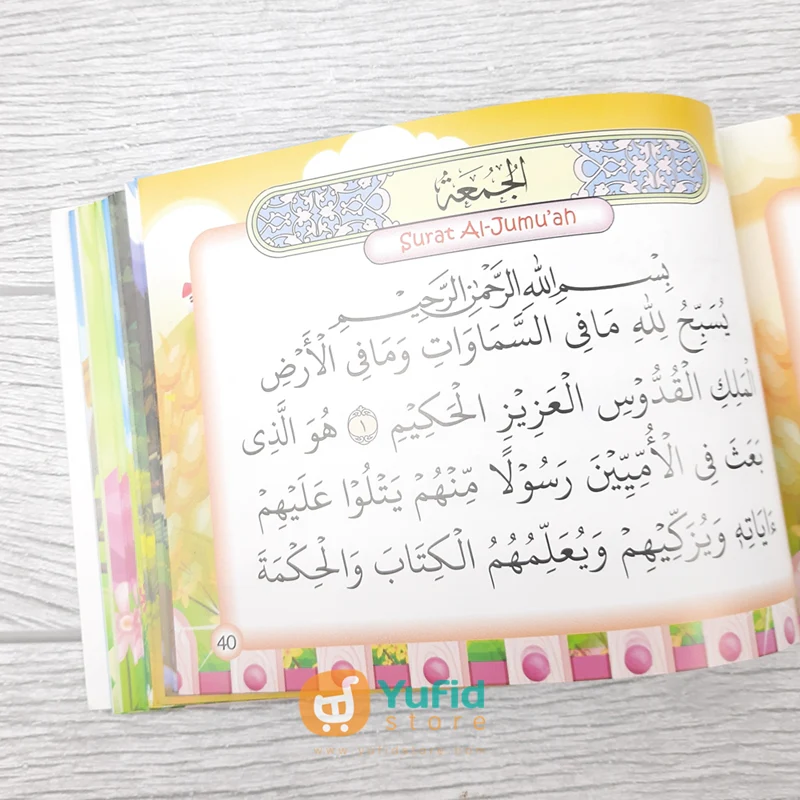 الجُمُعَة
Surat Al-Jumu'ah
بِسْمِ اللهِ الرَّحْمٰنِ الرَّحِيْمِ
يُسَبِّحُ لِلّٰهِ مَا فِى السَّمَاوَاتِ وَمَا فِى الْأَرْضِ
الْمَلِكِ الْقُدُّوْسِ الْعَزِيْزِ الْحَكِيْمِ ١ هُوَ الَّذِى
بَعَثَ فِى الْأُمِّيِّيْنَ رَسُوْلًا مِّنْهُمْ يَتْلُوْا عَلَيْهِمْ
ءَايَاتِهِ وَيُزَكِّيْهِمْ وَيُعَلِّمُهُمُ الْكِتَابَ وَالْحِكْمَةَ
40
Yufid
store